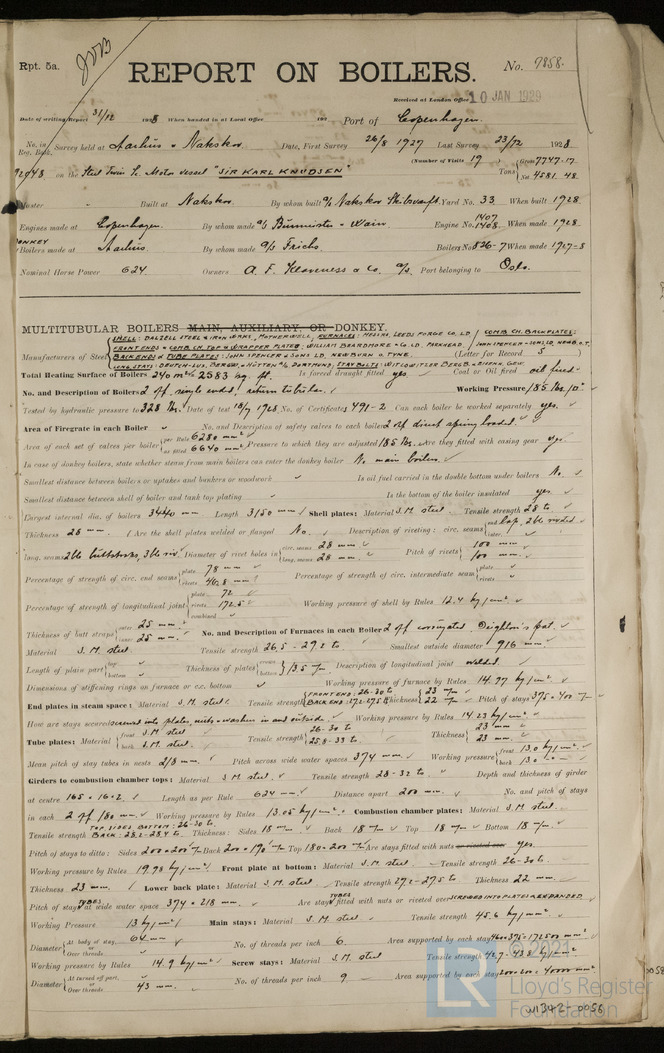 Rpt. 5a.
REPORT ON BOILERS.
No. 9858.
Received at London Office 10 JAN 1929
Date of writing Report 31/12 1928 When handed in at Local Office 192 Port of Copenhagen.
No. in Reg. Book. Survey held at Aarhus & Nakskov Date, First Survey 26/8 1927 Last Survey 23/12 1928
(Number of Visits 19)
on the Steel Twin Sc. Motor vessel "SIR KARL KNUDSEN" Tons Gross 7747.17 Net 4581.48
Master Built at Nakskov By whom built A/s Nakskov Skibsværft. Yard No. 33 When built 1928
Engines made at Copenhagen. By whom made A/s Burmeister & Wain Engine No. 1407 1408 When made 1928
Boilers made at Aarhus. By whom made A/s Frichs Boilers No. 526-7 When made 1927-8
Nominal Horse Power 624 Owners A. F. Klaveness & Co. A/s Port belonging to Oslo.
MULTITUBULAR BOILERS MAIN, AUXILIARY, OR DONKEY.
Manufacturers of Steel SHELL: DALZELL STEEL & IRON WORKS, MOTHERWELL, FURNACES: MESSRS. LEEDS FORGE CO. LD. COMB CH. BACKPLATES:
FRONT ENDS & COMB. CH. TOP & WRAPPER PLATES: WILLIAM BEARDMORE & CO. LD. PARKHEAD
BACK ENDS & TUBE PLATES: JOHN SPENCER & SONS LD. NEWBURN O. TYNE. (Letter for Record S)
Total Heating Surface of Boilers 240 m² = 2583 sq. ft. Is forced draught fitted yes Coal or Oil fired oil fired
No. and Description of Boilers 2 off. single ended, return tubular. Working Pressure 185 lbs. □"
Tested by hydraulic pressure to 328 lbs. Date of test No. of Certificate 491-2 Can each boiler be worked separately yes.
Area of Firegrate in each Boiler No. and Description of safety valves to each boiler 2 off direct spring loaded.
Area of each set of valves per boiler per Rule 6280 mm² as fitted 6640 mm² Pressure to which they are adjusted 185 lbs. Are they fitted with easing gear yes
In case of donkey boilers, state whether steam from main boilers can enter the donkey boiler No main boilers.
Smallest distance between boilers or uptakes and bunkers or woodwork Is oil fuel carried in the double bottom under boilers No.
Smallest distance between shell of boiler and tank top plating Is the bottom of the boiler insulated yes.
Largest internal dia. of boilers 3440 mm Length 3150 mm Shell plates: Material S.M. steel Tensile strength 28 to
Thickness 26 mm. Are the shell plates welded or flanged No. Description of riveting: circ. seams end lap, dble riveted
long. seams dble buttstraps, 3ble riv. Diameter of rivet holes in circ. seams 28 mm long. seams 28 mm Pitch of rivets 100 mm 100 mm.
Percentage of strength of circ. end seams plate 78 rivets 46.8 Percentage of strength of circ. intermediate seam plate rivets
Percentage of strength of longitudinal joint plate 72 rivets 172.5 combined Working pressure of shell by Rules 12.4 kg/mm²
Thickness of butt straps outer 25 mm. inner 25 mm. No. and Description of Furnaces in each Boiler 2 off corrugated, Deighton's pat.
Material S.M. steel Tensile strength 26.5 - 29.2 to Smallest outside diameter 916 mm
Length of plain part top bottom Thickness of plates crown bottom 13.5 m/m. Description of longitudinal joint welded.
Dimensions of stiffening rings on furnace or c.c. bottom Working pressure of furnace by Rules 14.97 kg/mm²
End plates in steam space: Material S.M. steel. Tensile strength FRONT END: 26-30 to BACK END: 27.2-27.5 to Thickness 23 m/m 22 m/m Pitch of stays 375 × 400 m/m
How are stays secured screwed into plates, nuts & washers in and outside. Working pressure by Rules 14.23 kg/mm².
Tube plates: Material front S.M. steel back S.M. steel. Tensile strength 26-30 to 25.8-33 to. Thickness 23 mm 23 mm.
Mean pitch of stay tubes in nests 218 mm. Pitch across wide water spaces 374 mm Working pressure front 13.0 kg/mm². back 13.0
Girders to combustion chamber tops: Material S.M. steel. Tensile strength 28-32 to. Depth and thickness of girder
at centre 165 × 16 × 2. Length as per Rule 624 mm Distance apart 200 mm. No. and pitch of stays
in each 2 off 180 mm Working pressure by Rules 13.05 kg/mm² Combustion chamber plates: Material S.M. steel.
Tensile strength TOP SIDES BOTTOM: 26-30 to. BACK: 28.1-28.4 to Thickness: Sides 18 m/m Back 18 m/m Top 18 m/m Bottom 18 m/m.
Pitch of stays to ditto: Sides 200 × 200 m/m Back 200 × 190 m/m Top 180 × 200 m/m Are stays fitted with nuts or riveted over yes.
Working pressure by Rules 19.98 kg/mm² Front plate at bottom: Material S.M. steel Tensile strength 26-30 to.
Thickness 23 mm Lower back plate: Material S.M. steel Tensile strength 27.2-27.5 to Thickness 22 mm.
Pitch of stays TUBES at wide water space 374 × 218 mm. Are stays TUBES fitted with nuts or riveted over SCREWED INTO PLATES & EXPANDED
Working Pressure 13 kg/mm² Main stays: Material S.M. steel Tensile strength 45.6 kg/mm²
Diameter At body of stay, 64 mm or Over threads No. of threads per inch 6. Area supported by each stay
Working pressure by Rules 14.9 kg/mm². Screw stays: Material S.M. steel Tensile strength 42.7-43.8 kg/mm².
Diameter At turned off part, or Over threads 43 mm. No. of threads per inch 9 Area supported by each stay 200 × 200 = 40000 mm²
© 2021
LR
Lloyd's Register
Foundation
W1342-0056